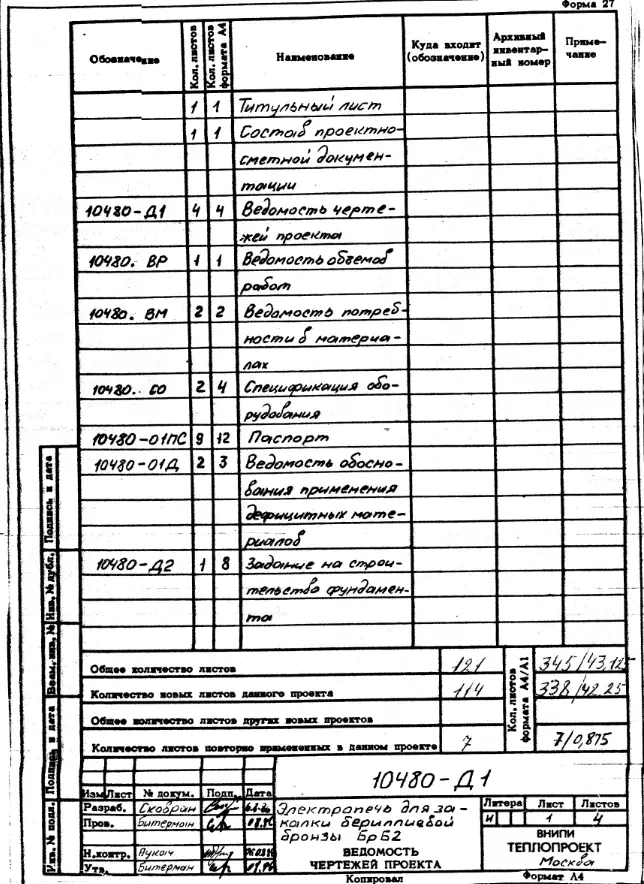 Форма 27
Обозначение Кол. листов Кол. листов формата А4 Наименование Куда входит (обозначение) Архивный инвентар-ный номер Приме-чание
1 1 Титульный лист
1 1 Состав проектно-
сметной докумен-
тации
10480-Д1 4 4 Ведомость черте-
жей проекта
10480. ВР 1 1 Ведомость объемов
работ
10480. ВМ 2 2 Ведомость потреб-
ности в материа-
лах
10480. СО 2 4 Спецификация обо-
рудования
10480-01ПС 9 12 Паспорт
10480-01Д 2 3 Ведомость обосно-
вания применения
дефицитных мате-
риалов
10480-Д2 1 8 Задание на строи-
тельство фундамен-
та
Общее количество листов 121 Кол. листов формата А4/А1 345/43,125
Количество новых листов данного проекта 114 338/42.25
Общее количество листов других новых проектов
Количество листов повторно примененных в данном проекте 7 7/0,875
Инв. № подл. Подпись и дата Взам. инв. № Инв. № дубл. Подпись и дата
10480-Д1
Изм Лист № докум. Подп. Дата
Разраб. Скобран
Пров. Битерман
Н.контр.
Утв. Битерман
Электропечь для за-
калки бериллиевой
бронзы БрБ2
ВЕДОМОСТЬ
ЧЕРТЕЖЕЙ ПРОЕКТА
Литера Лист Листов
И 1 4
ВНИПИ
ТЕПЛОПРОЕКТ
Москва
Копировал Формат А4